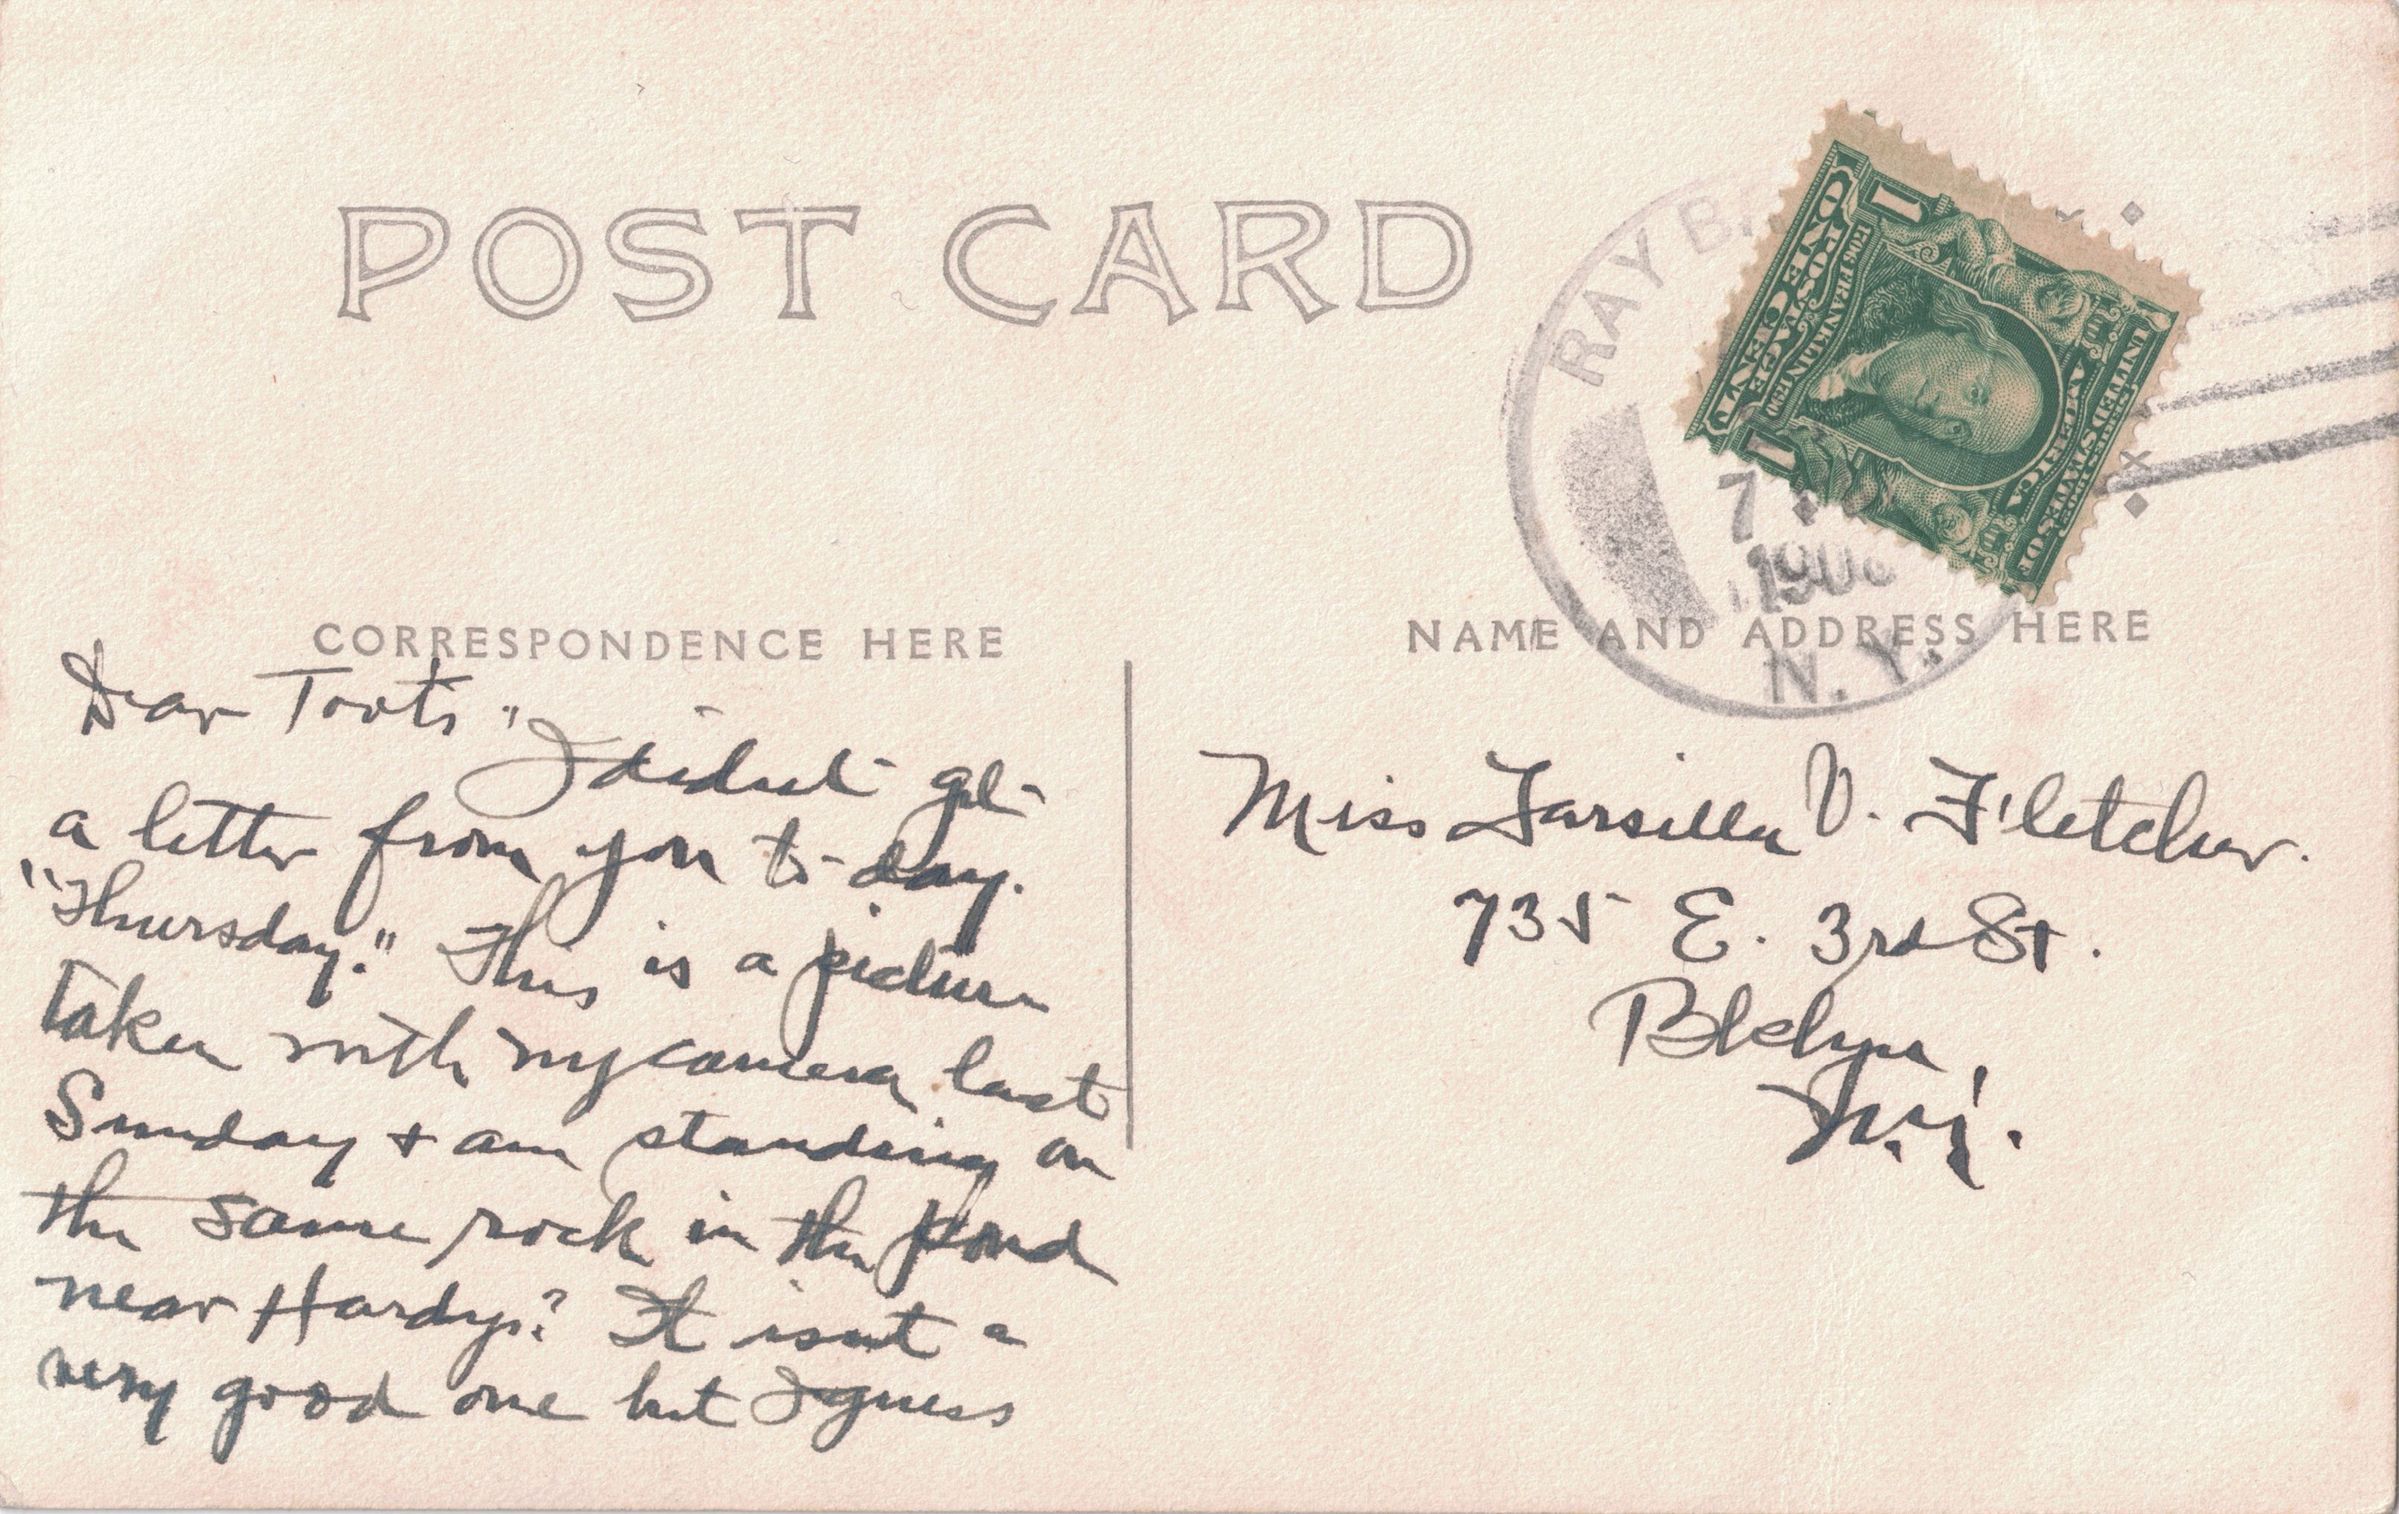 POST CARD
RAY B
7
190
N. Y.
ONE CENT
POSTAGE
FRANKLIN
1
1
UNITED STATES OF
AMERICA
CORRESPONDENCE HERE
NAME AND ADDRESS HERE
Dear Toots "
I didn't get
a letter from you to-day.
"Thursday." This is a picture
taken with my camera last
Sunday + am standing on
the same rock in the pond
near Hardys? It isn't a
very good one but I guess
Miss Tarsilla V. Fletcher.
735 E. 3rd St.
Bklyn,
N.Y.